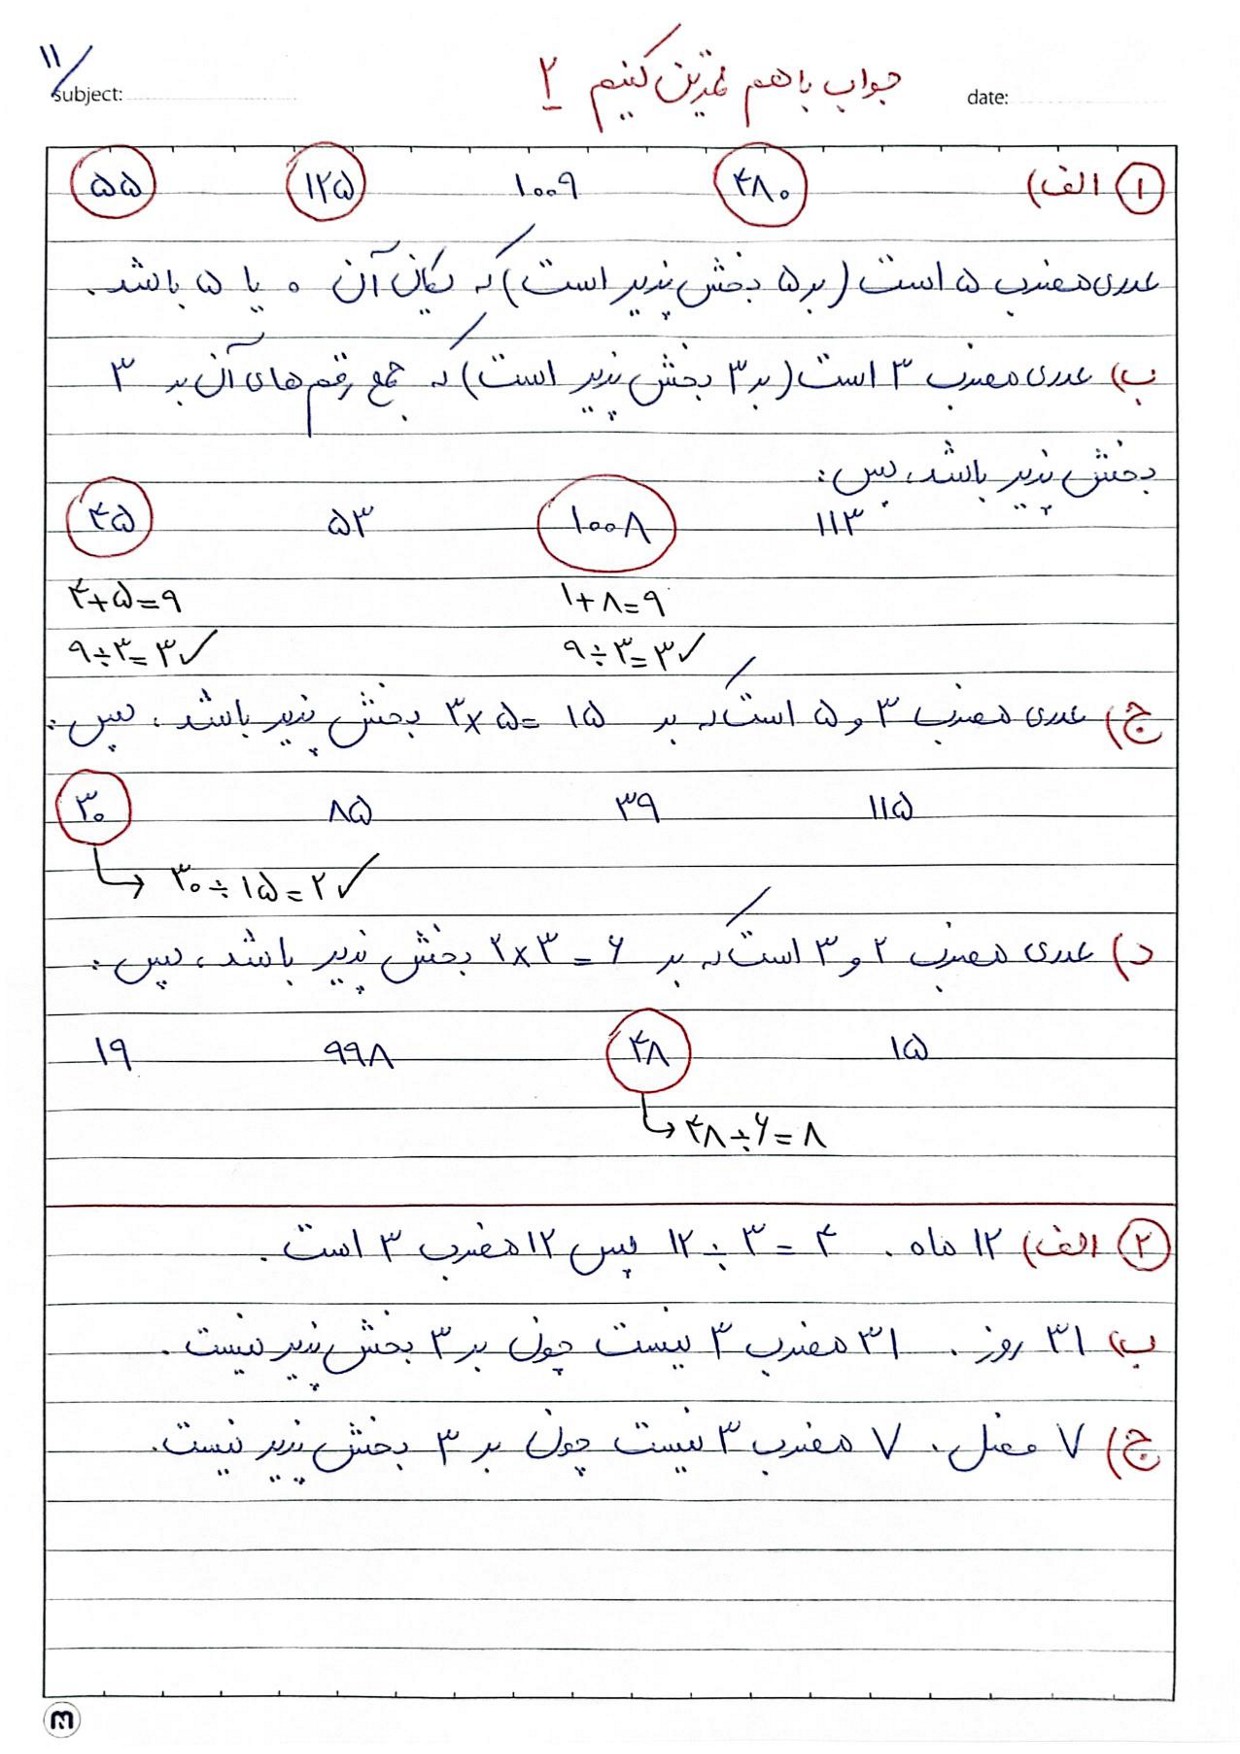 ۱۱
subject:
جواب با هم تمرین کنیم ۲
date:
۱ الف) ۴۸۰ ۱۰۰۹ ۱۲۵ ۵۵
عددی مضرب ۵ است (بر ۵ بخش پذیر است) که یکان آن ۰ یا ۵ باشد.
ب) عددی مضرب ۳ است (بر ۳ بخش پذیر است) که جمع رقم های آن بر ۳
بخش پذیر باشد، پس:
۱۱۳ ۱۰۰۸ ۵۳ ۴۵
۱+۸=۹ ۴+۵=۹
۹÷۳=۳✓ ۹÷۳=۳✓
ج) عددی مضرب ۳ و ۵ است که بر ۱۵ =۳×۵ بخش پذیر باشد، پس:
۱۱۵ ۳۹ ۸۵ ۳۰
→ ۳۰÷۱۵=۲✓
د) عددی مضرب ۲ و ۳ است که بر ۲×۳=۶ بخش پذیر باشد، پس:
۱۵ ۴۸ ۹۹۸ ۱۹
→ ۴۸÷۶=۸
۲ الف) ۱۲ ماه. ۱۲÷۳=۴ پس ۱۲ مضرب ۳ است.
ب) ۳۱ روز. ۳۱ مضرب ۳ نیست چون بر ۳ بخش پذیر نیست.
ج) ۷ فصل. ۷ مضرب ۳ نیست چون بر ۳ بخش پذیر نیست.